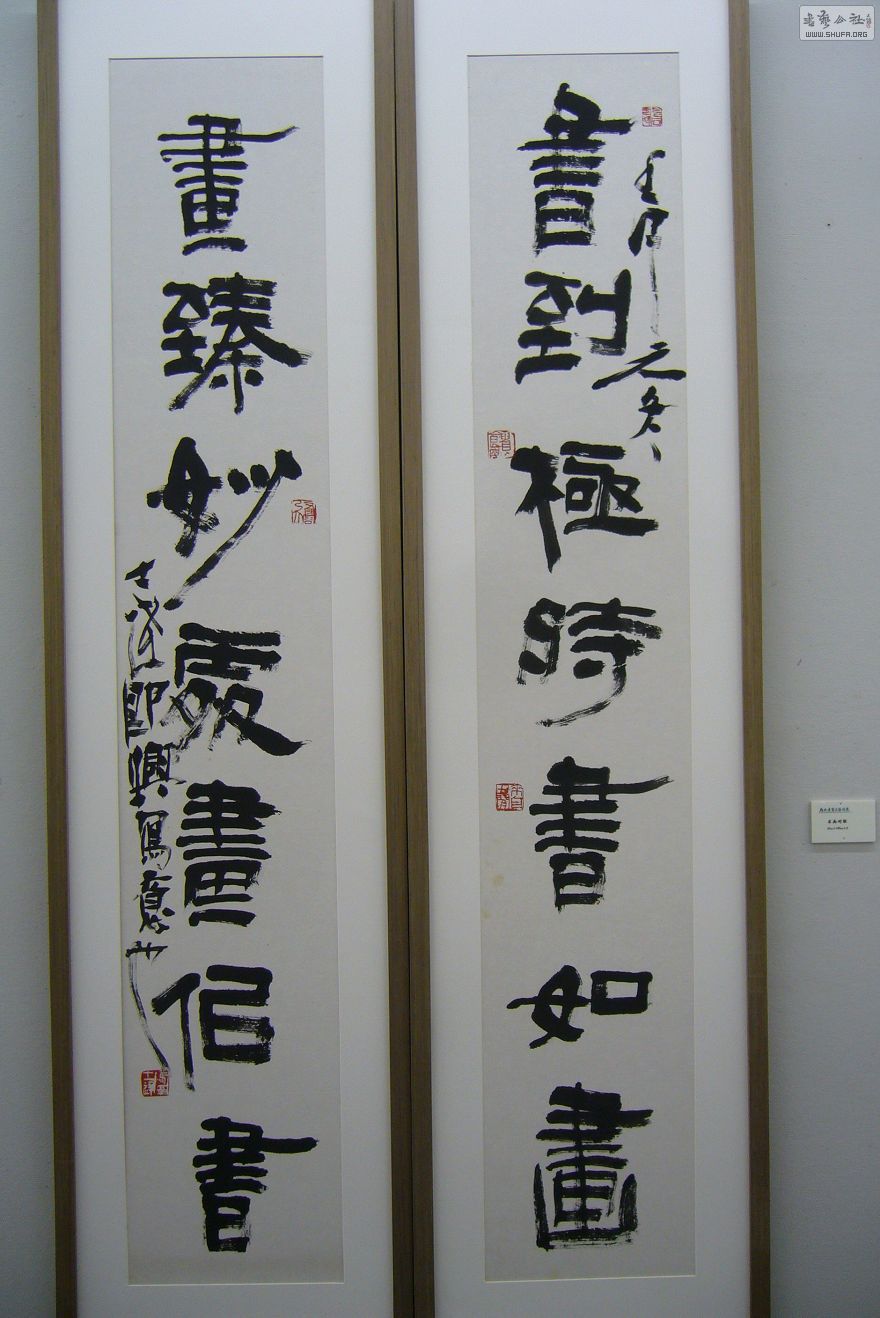 書到極時書如畫
壬辰冬
畫臻妙處畫佀書
即興寫意也
書藝公社
WWW.SHUFA.ORG